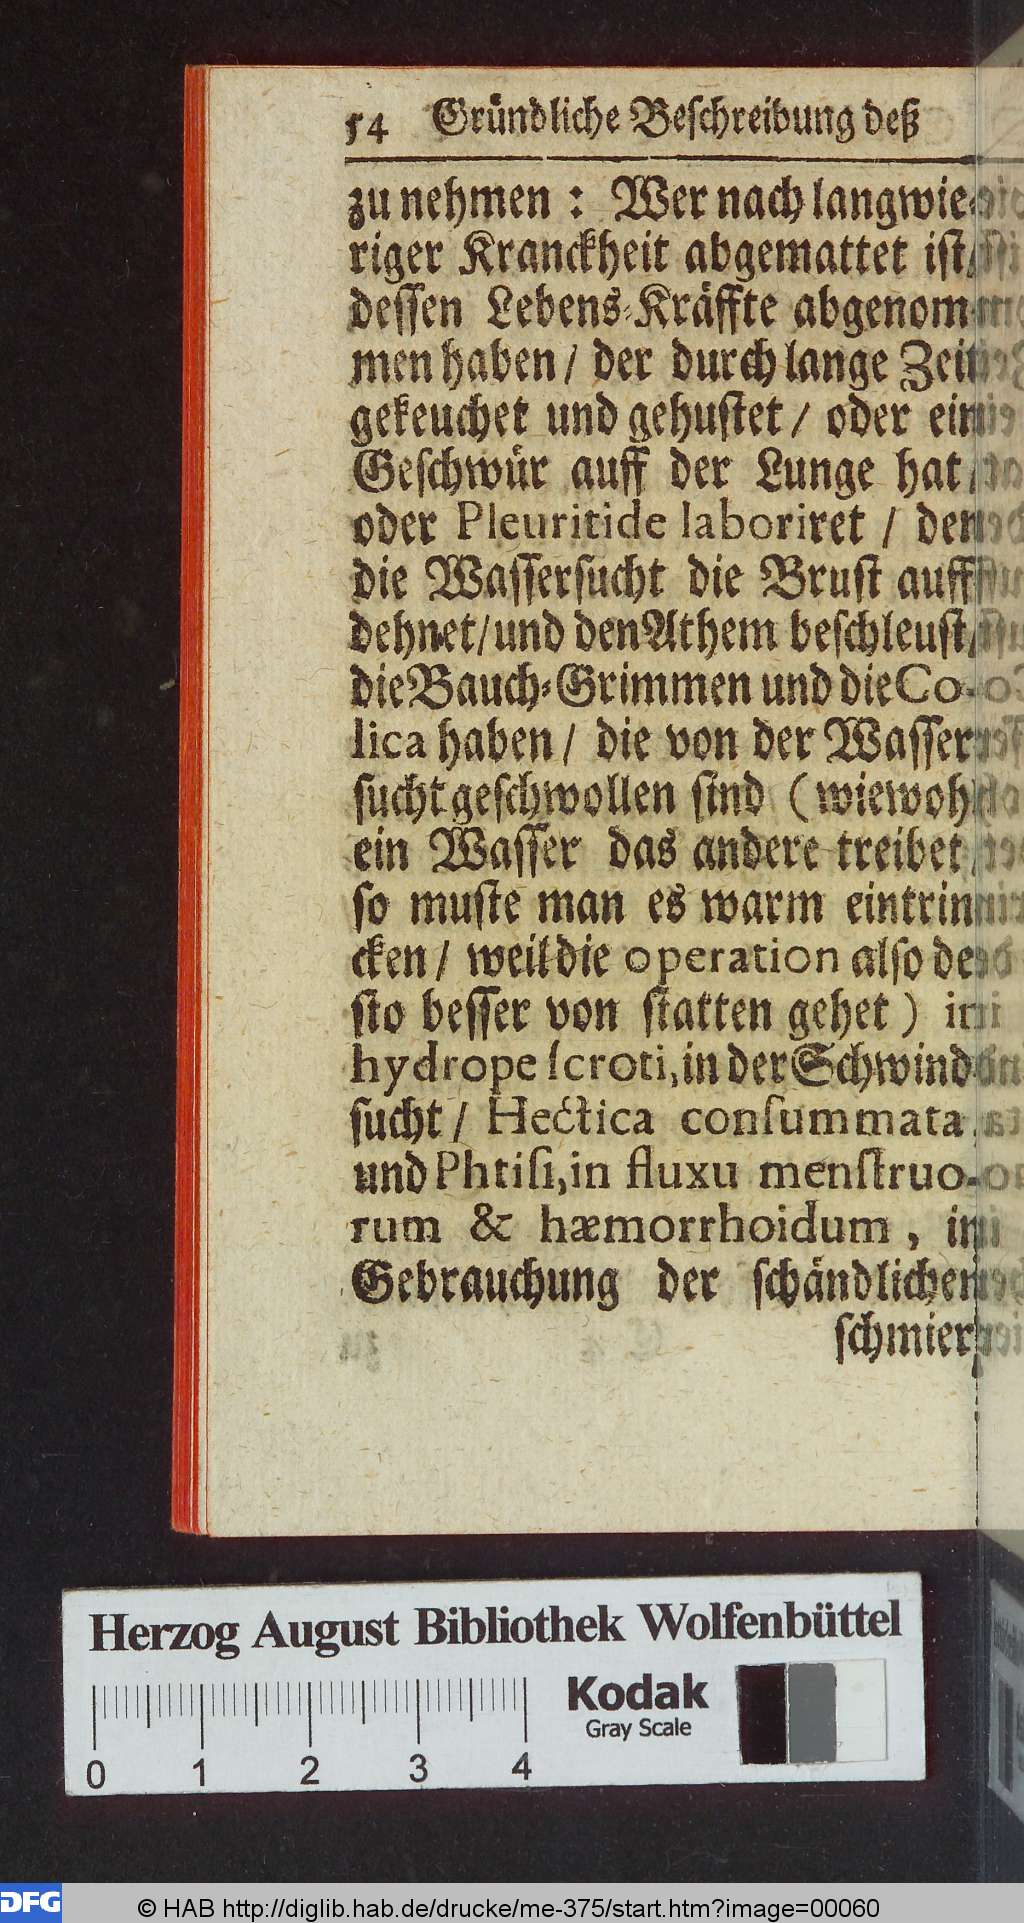 54 Gründliche Beschreibung deß
zu nehmen : Wer nach langwie-
riger Kranckheit abgemattet ist/
dessen Lebens-Kräffte abgenom-
men haben / der durch lange Zeit
gekeuchet und gehustet / oder ein
Geschwür auff der Lunge hat /
oder Pleuritide laboriret / den
die Wassersucht die Brust auff
dehnet/und den Athem beschleust/
die Bauch-Grimmen und die Co-
lica haben / die von der Wasser-
sucht geschwollen sind ( wiewohl
ein Wasser das andere treibet /
so muste man es warm eintrin-
cken / weil die operation also de-
sto besser von statten gehet ) in
hydrope scroti, in der Schwind-
sucht / Hectica consummata
und Phtisi, in fluxu menstruo-
rum & hæmorrhoidum , in
Gebrauchung der schändlichen
schmier-
Herzog August Bibliothek Wolfenbüttel
Kodak
Gray Scale
0 1 2 3 4
DFG © HAB http://diglib.hab.de/drucke/me-375/start.htm?image=00060